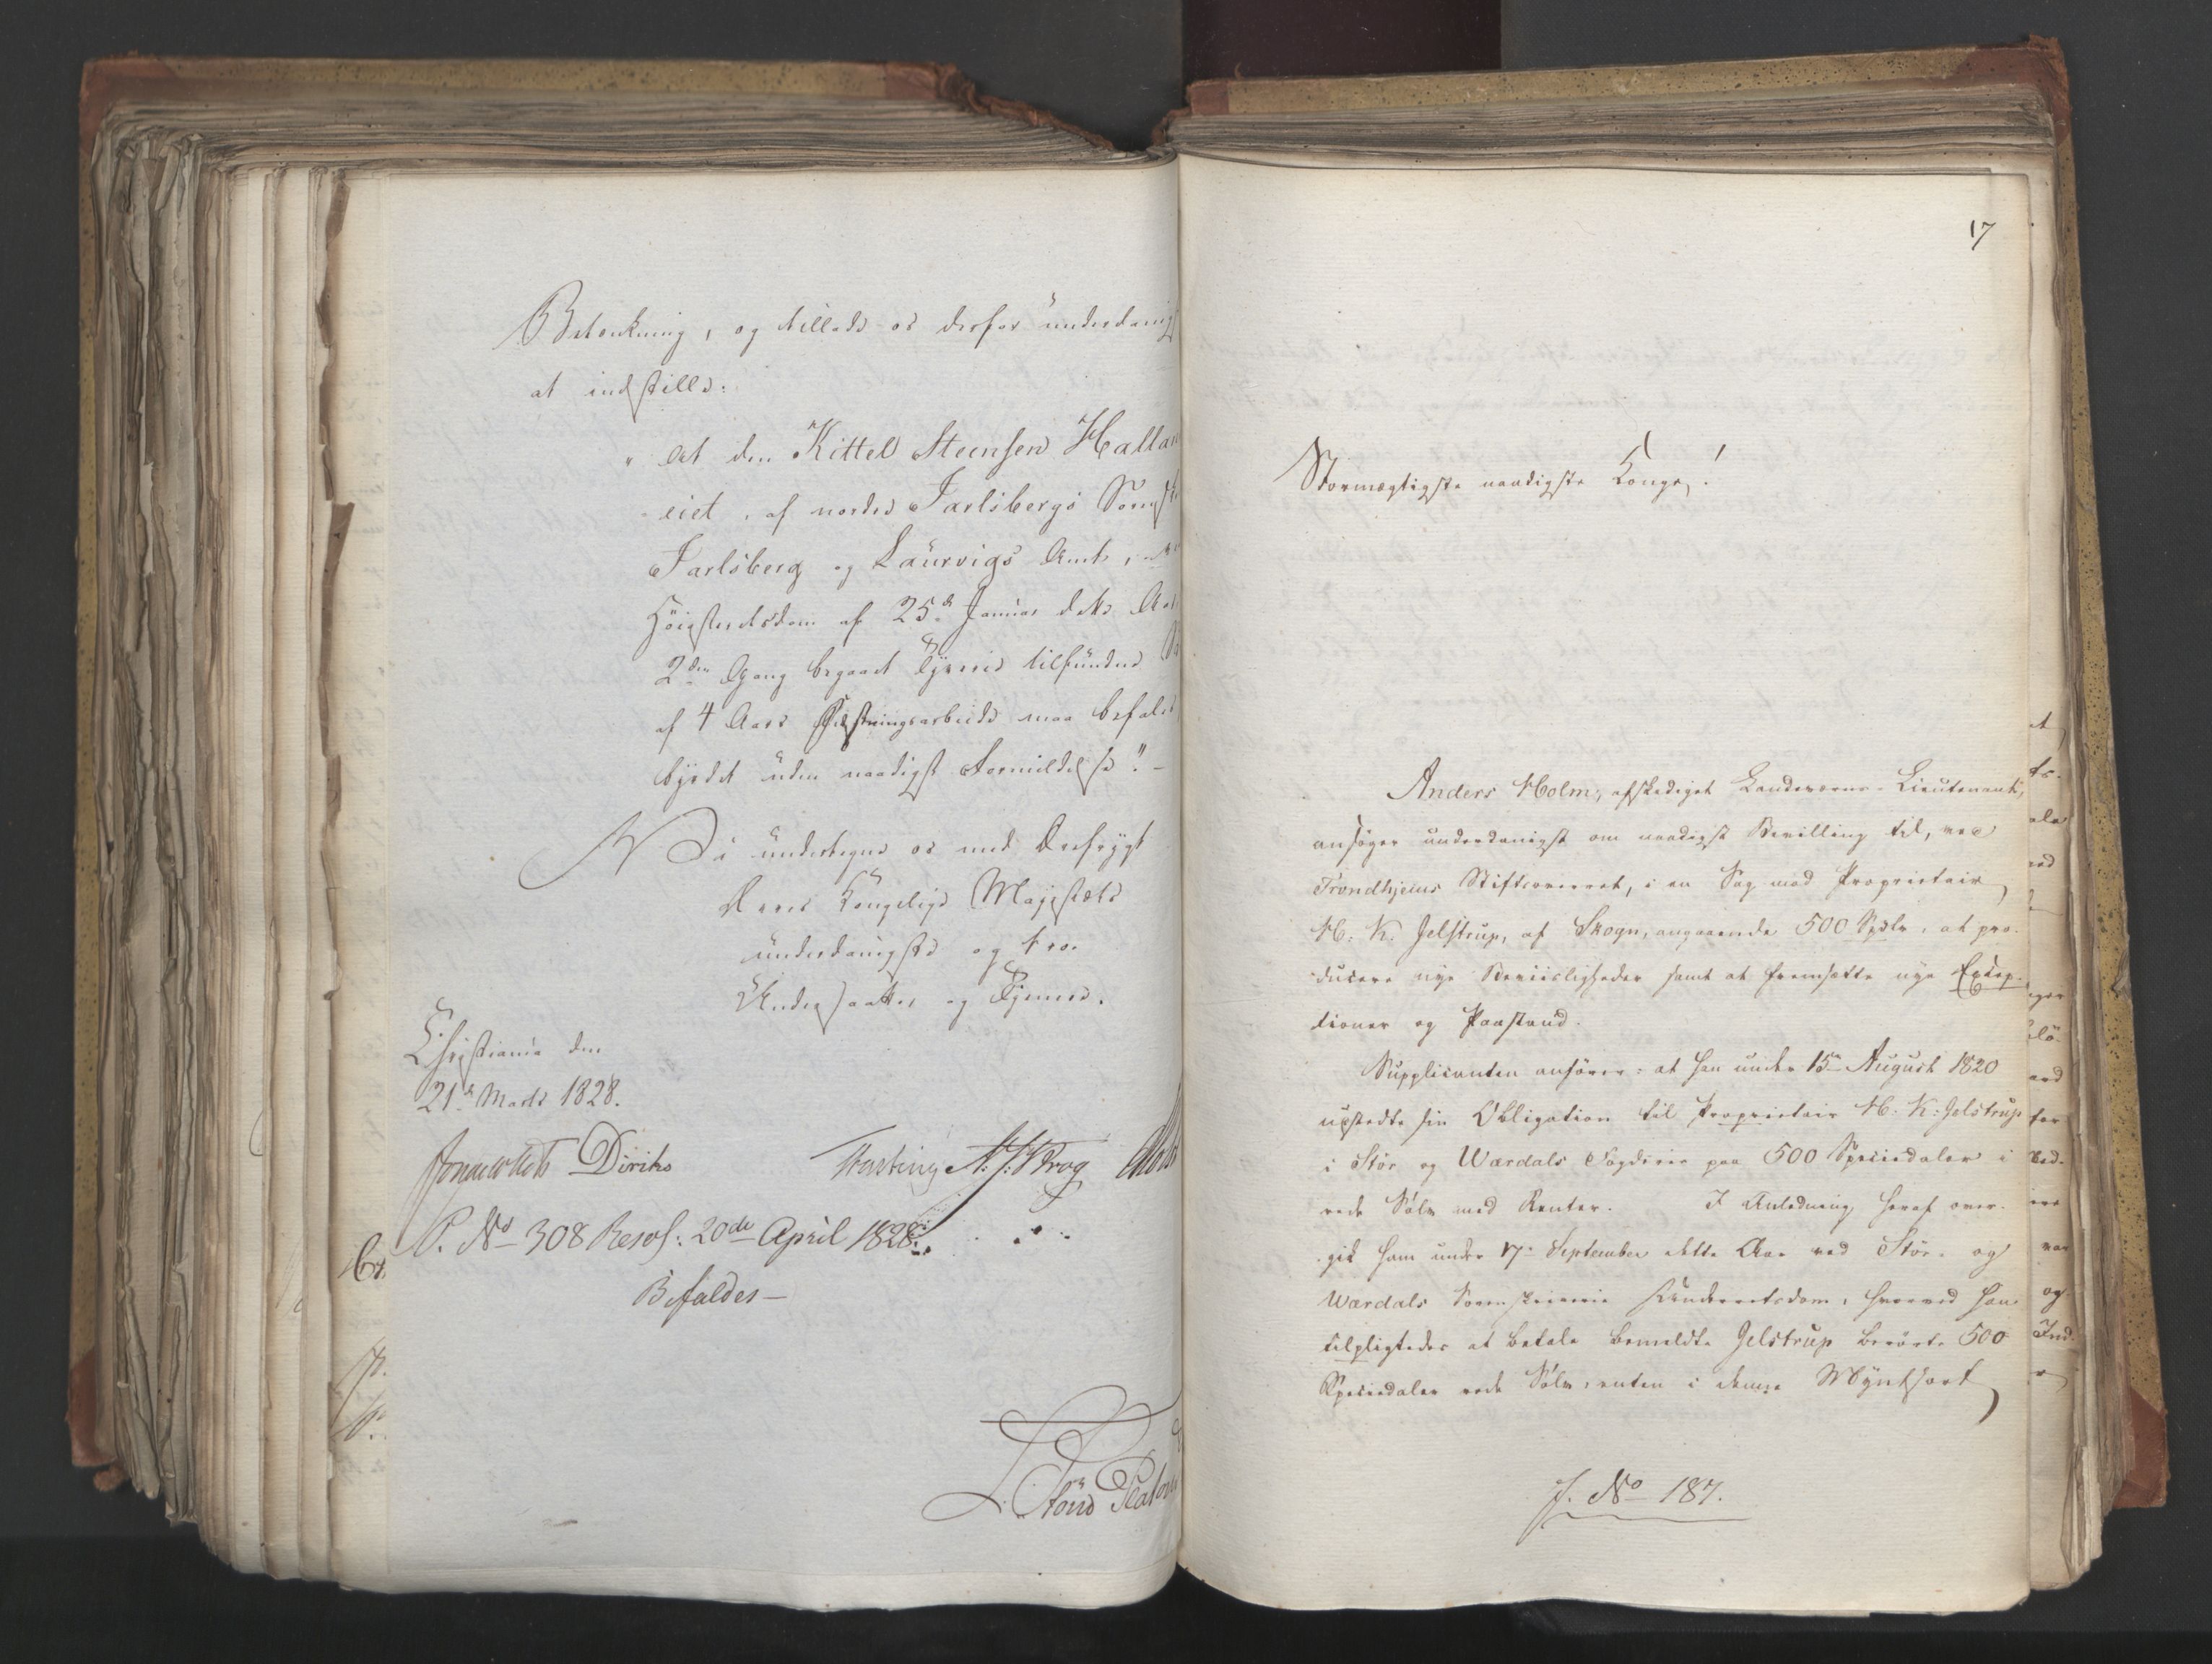 Betænkning, og tillade os derfor underdanigst
at indstille:
"At den Kittel Steensen Hallan
eiet, af nordre Jarlsbergs Sorenskr
Jarlsberg og Laurvigs Amt, ved
Höiesteretsdom af 25de Januar dette Aar
2den Gang begaaet Tyverie tilfundne
af 4 Aars Fæstningsarbeide maa befales
byrdet uden naadigst Formildelse". –
Vi undertegne os med Ærefrygt
Deres Kongelige Majestæts
underdanigste og troe
Undersaatter og Tjenere.
Christiania den
21de Marts 1828.
Diriks
A. J. Krog
P. No 308 Resol: 20de April 1828:
Befaldes –
17
Stormægtigste naadigste Konge!
Anders Holm, afskediget Landeværns-Lieutenant,
ansøger underdanigst om naadigst Bevilling til, ved
Trondhjems Stiftsoverret, i en Sag mod Proprietair
H. K. Jelstrup, af Skogn, angaaende 500 Spdlr, at pro-
ducere nye Beviisligheder samt at fremsætte nye Excep-
tioner og Paastand.
Supplicanten anfører: at han under 15de August 1820
udstedte sin Obligation til Proprietair H. K: Jelstrup
i Stør og Wærdals Fogderie paa 500 Speciedaler i
rede Sølv med Renter. I Anledning heraf over-
gik ham under 17de September dette Aar ved Stør- og
Wærdals Sorenskriverie Underretsdom, hvorved han
tilpligtedes at betale bemeldte Jelstrup berørte 500
Speciedaler rede Sølv, enten i denne Myntsort
J. No 187.